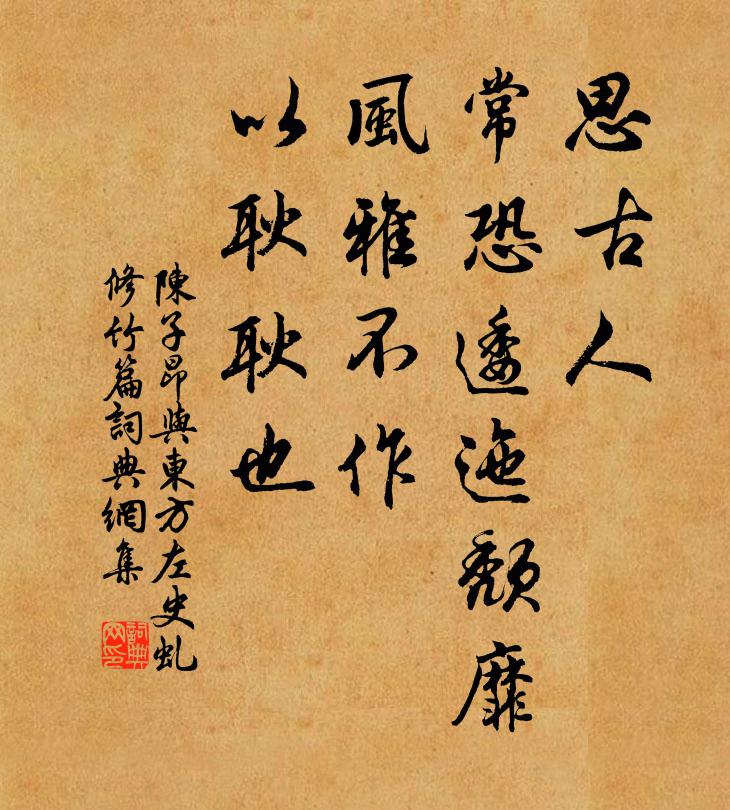 思古人
常恐逶迤頹靡
風雅不作
以耿耿也
陳子昂與東方左史虬
修竹篇詞典網集
詞典
网印